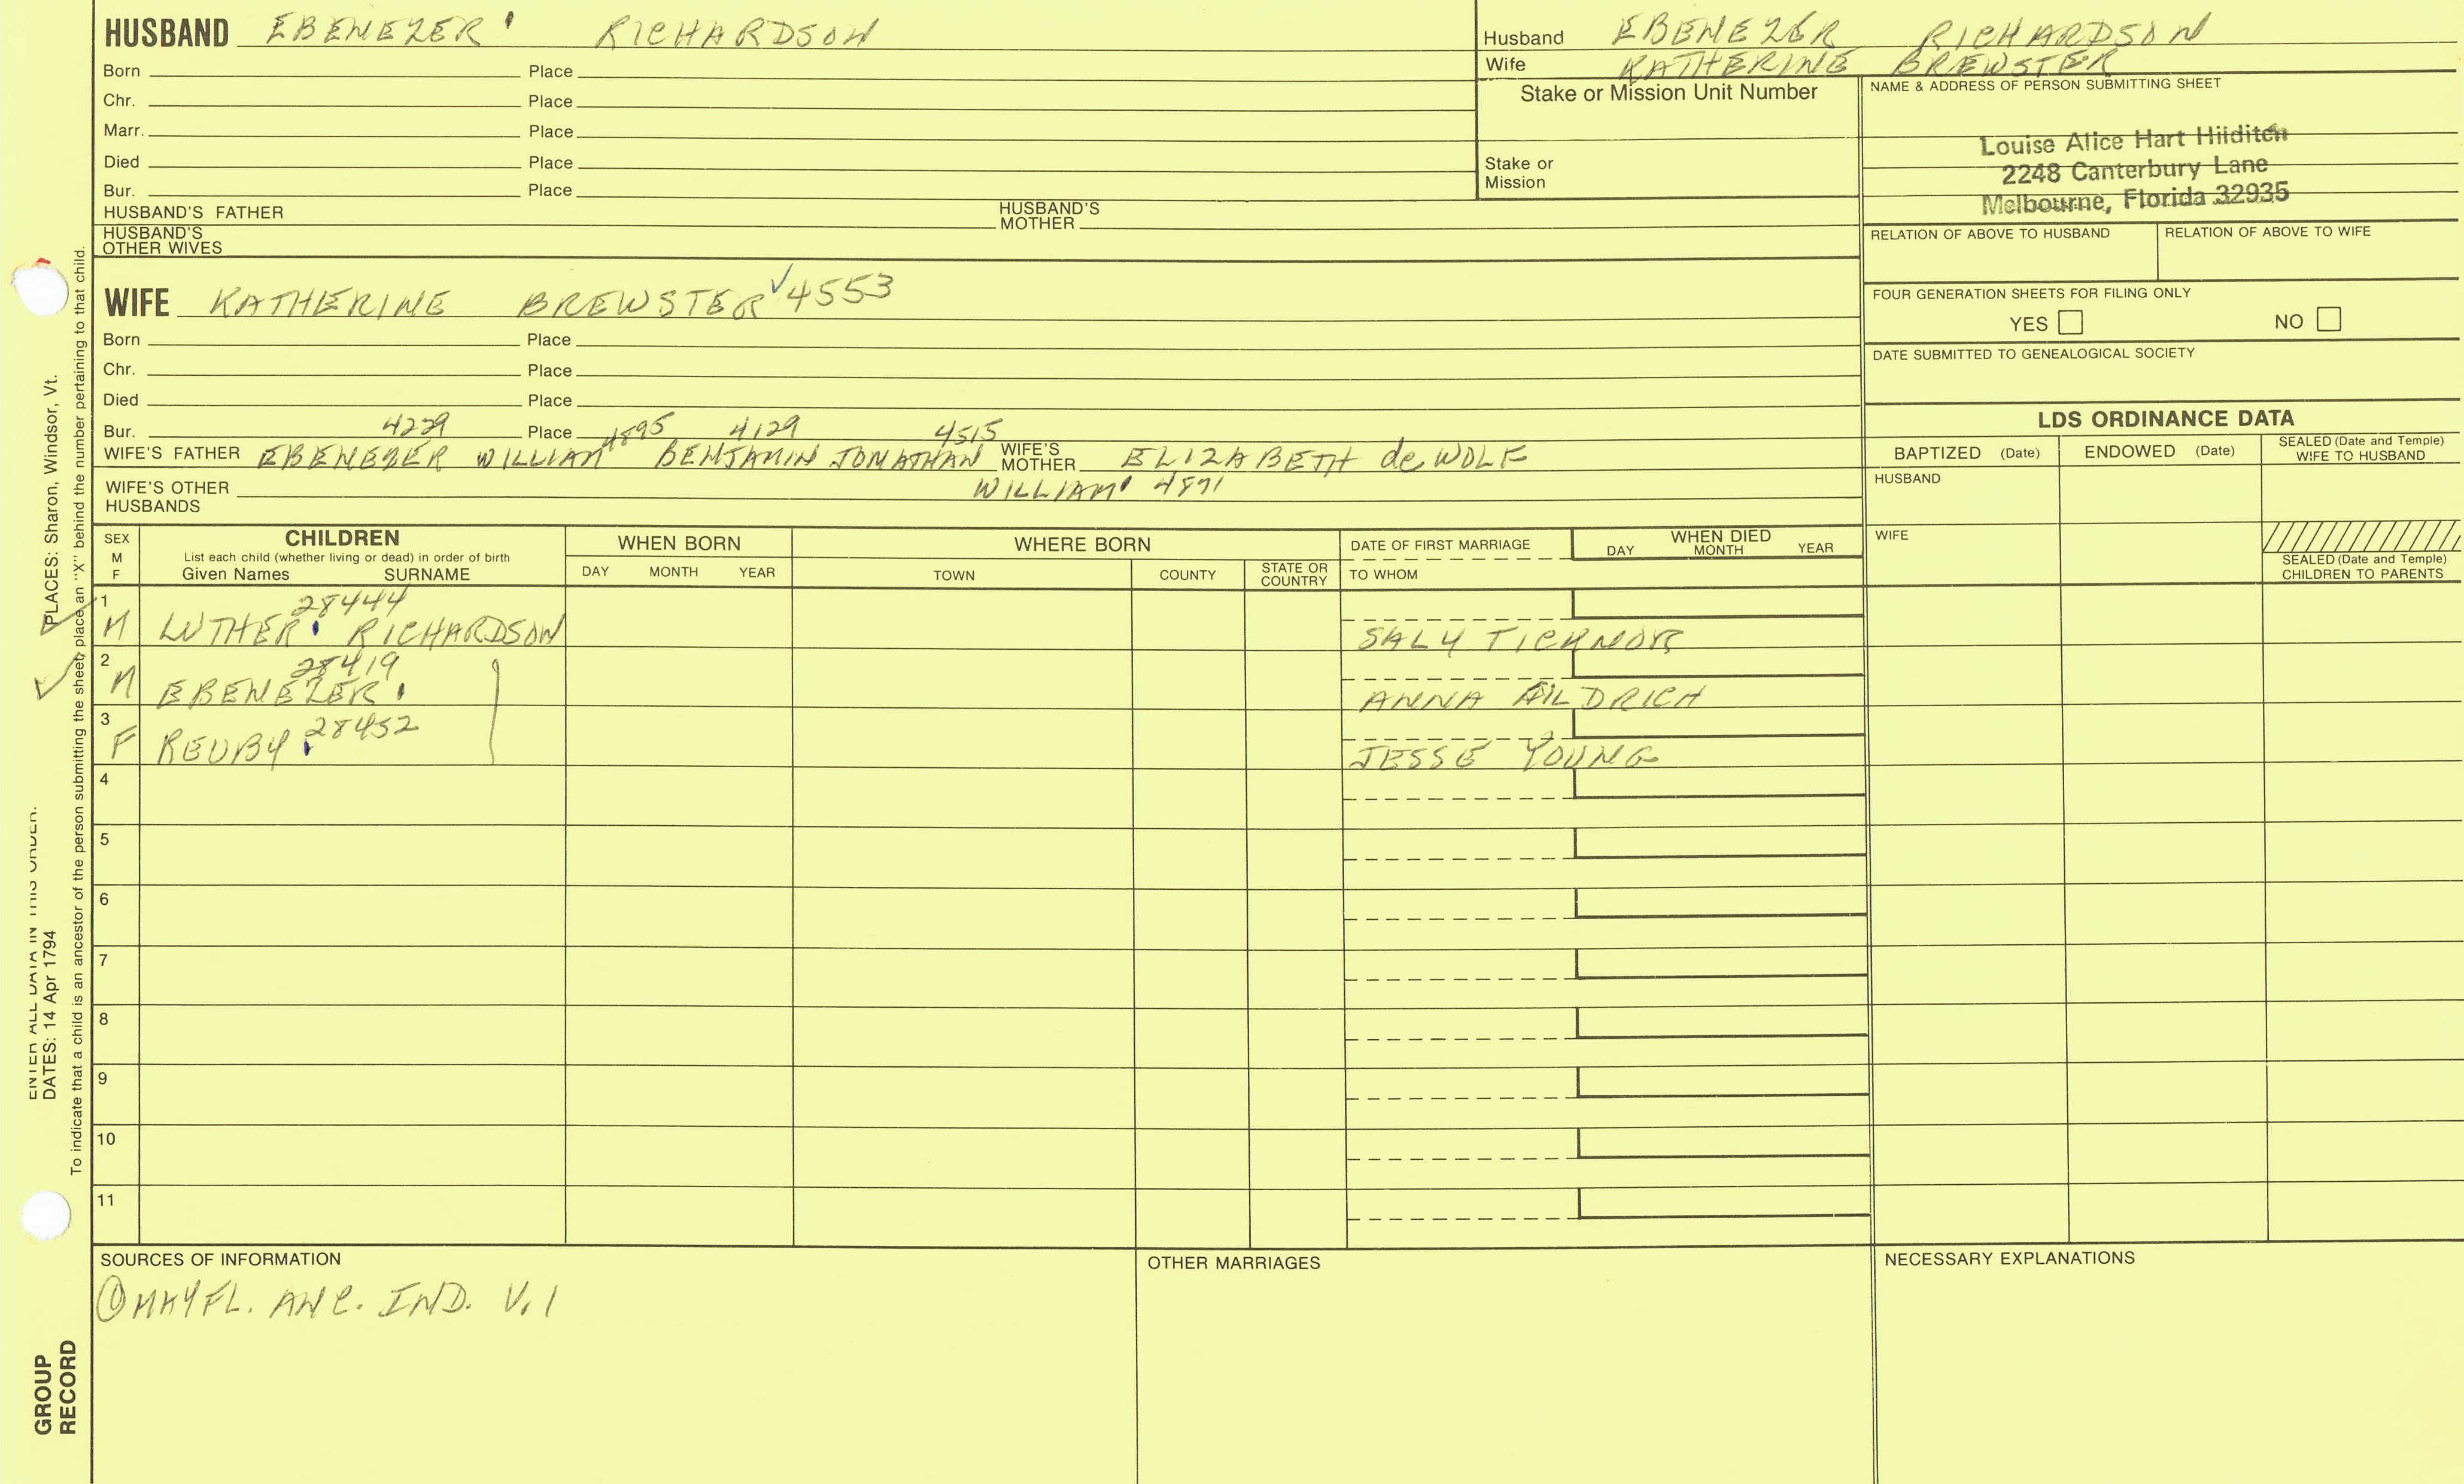 HUSBAND EBENEZER' RICHARDSON
Born Place
Chr. Place
Marr. Place
Died Place
Bur. Place
HUSBAND'S FATHER HUSBAND'S MOTHER
HUSBAND'S OTHER WIVES
Husband EBENEZER RICHARDSON
Wife KATHERINE BREWSTER
Stake or Mission Unit Number
Stake or Mission
NAME & ADDRESS OF PERSON SUBMITTING SHEET
Louise Alice Hart Hilditch
2248 Canterbury Lane
Melbourne, Florida 32935
RELATION OF ABOVE TO HUSBAND RELATION OF ABOVE TO WIFE
FOUR GENERATION SHEETS FOR FILING ONLY
YES NO
DATE SUBMITTED TO GENEALOGICAL SOCIETY
WIFE KATHERINE BREWSTER ✓4553
Born Place
Chr. Place
Died Place
Bur. Place
4229 4895 4129 4515
WIFE'S FATHER EBENEZER WILLIAM BENJAMIN JONATHAN WIFE'S MOTHER ELIZABETH de WOLF
WILLIAM' 4871
WIFE'S OTHER HUSBANDS
LDS ORDINANCE DATA
BAPTIZED (Date) ENDOWED (Date) SEALED (Date and Temple) WIFE TO HUSBAND
HUSBAND
WIFE
SEALED (Date and Temple) CHILDREN TO PARENTS
SEX M F
CHILDREN
List each child (whether living or dead) in order of birth
Given Names SURNAME
WHEN BORN
DAY MONTH YEAR
WHERE BORN
TOWN COUNTY STATE OR COUNTRY
DATE OF FIRST MARRIAGE
TO WHOM
WHEN DIED
DAY MONTH YEAR
28444
1 M LUTHER RICHARDSON SALY TICKNOR
28419
2 M EBENEZER ANNA ALDRICH
28452
3 F REUBY JESSE YOUNG
4
5
6
7
8
9
10
11
SOURCES OF INFORMATION
① MAYFL. ANC. IND. V.1
OTHER MARRIAGES
NECESSARY EXPLANATIONS
ENTER ALL DATA IN THIS ORDER:
DATES: 14 Apr 1794
PLACES: Sharon, Windsor, Vt.
To indicate that a child is an ancestor of the person submitting the sheet, place an "X" behind the number pertaining to that child.
GROUP
RECORD